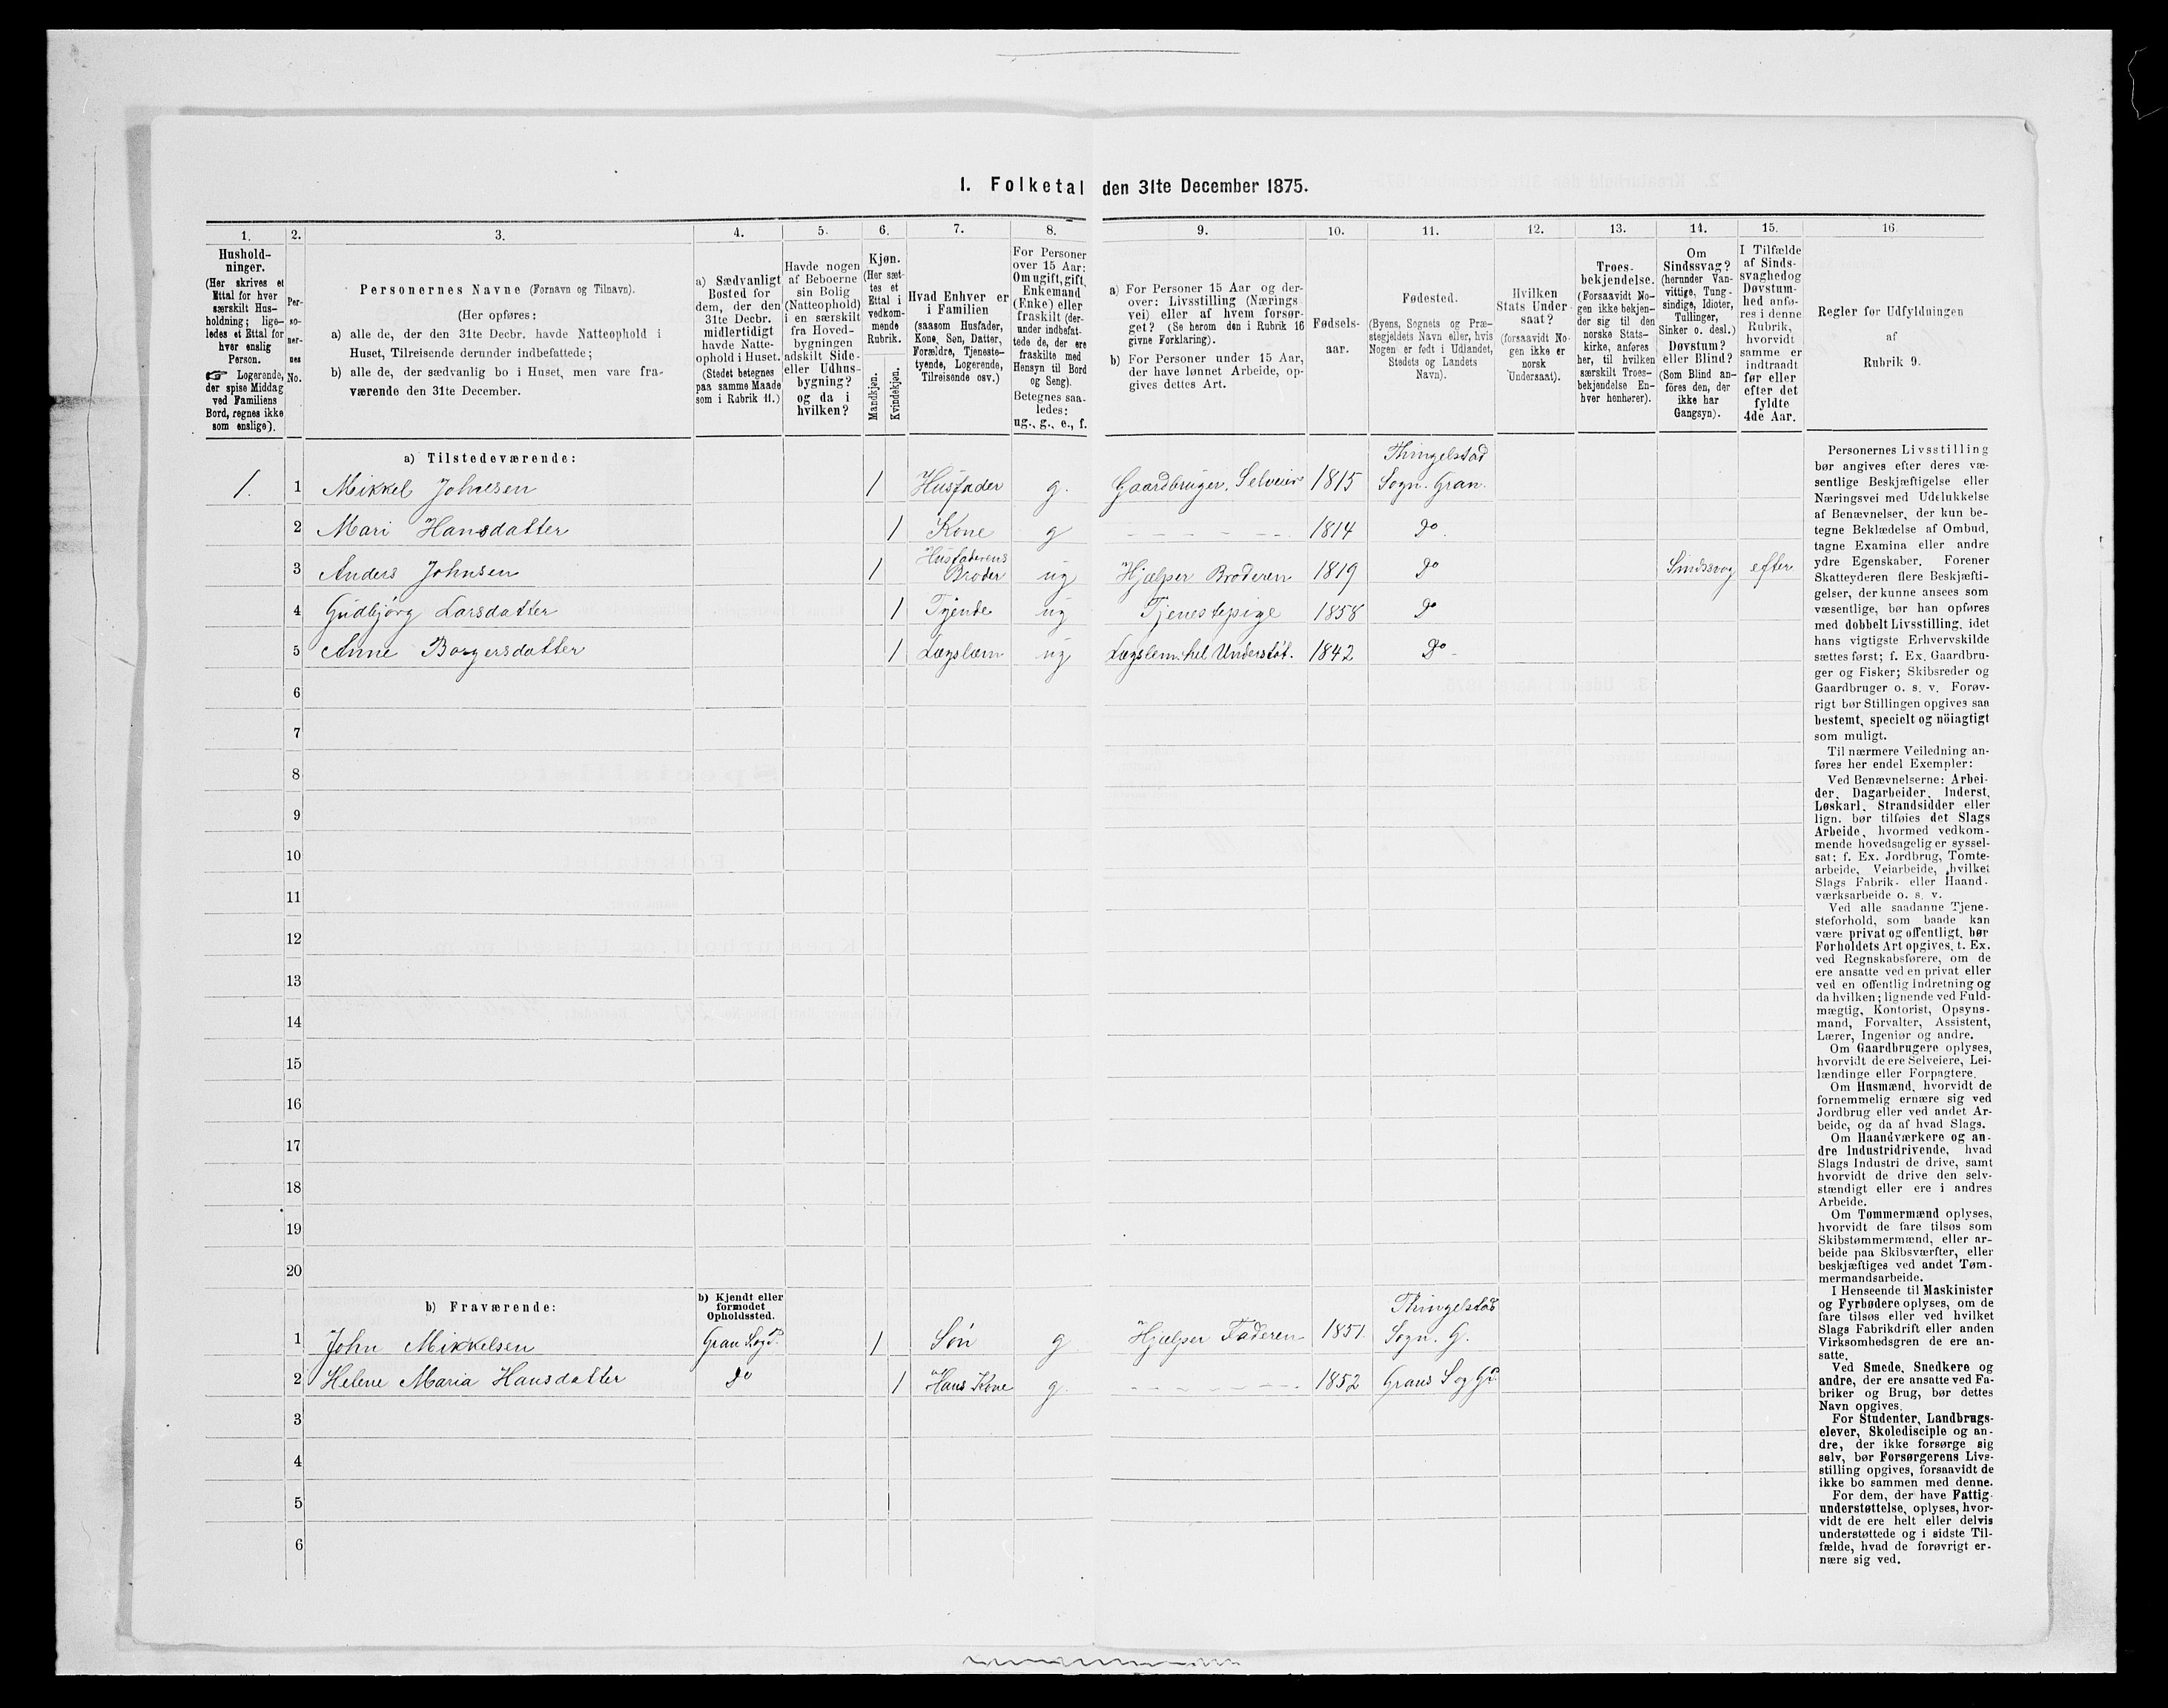 1. Folketal den 31te December 1875.
1. 2. 3. 4. 5. 6. 7. 8. 9. 10. 11. 12. 13. 14. 15. 16.
Hushold-
ninger.
(Her skrives et
Ettal for hver
særskilt Hus-
holdning; lige-
ledes et Ettal for
hver enslig
Person.
☞ Logerende,
der spise Middag
ved Familiens
Bord, regnes ikke
som enslige).
Per-
so-
ner-
nes
No.
Personernes Navne (Fornavn og Tilnavn).
(Her opføres:
a) alle de, der den 31te Decbr. havde Natteophold i
Huset, Tilreisende derunder indbefattede;
b) alle de, der sædvanlig bo i Huset, men vare fra-
værende den 31te December.
a) Sædvanligt
Bosted for
dem, der den
31te Decbr.
midlertidigt
havde Natte-
ophold i Huset.
(Stedet betegnes
paa samme Maade
som i Rubrik 11.)
Havde nogen
af Beboerne
sin Bolig
(Natteophold)
i en særskilt
fra Hoved-
bygningen
adskilt Side-
eller Udhus-
bygning?
og da i
hvilken?
Kjøn.
(Her sæt-
tes et
Ettal i
vedkom-
mende
Rubrik.
Mandkjøn.
Kvindekjøn.
Hvad Enhver er
i Familien
(saasom Husfader,
Kone, Søn, Datter,
Forældre, Tjeneste-
tyende, Logerende,
Tilreisende osv.)
For Personer
over 15 Aar:
Om ugift, gift,
Enkemand
(Enke) eller
fraskilt (der-
under indbefat-
tede de, der ere
fraskilte med
Hensyn til Bord
og Seng).
Betegnes saa-
ledes:
ug., g., e., f.
a) For Personer 15 Aar og der-
over: Livsstilling (Nærings-
vei) eller af hvem forsør-
get? (Se herom den i Rubrik 16
givne Forklaring).
b) For Personer under 15 Aar,
der have lønnet Arbeide, op-
gives dettes Art.
Fødsels-
aar.
Fødested.
(Byens, Sognets og Præ-
stegjeldets Navn eller, hvis
Nogen er født i Udlandet,
Stedets og Landets
Navn).
Hvilken
Stats Under-
saat?
(forsaavidt No-
gen ikke er
norsk
Undersaat).
Troes-
bekjendelse.
(Forsaavidt No-
gen ikke bekjen-
der sig til den
norske Stats-
kirke, anføres
her, til hvilken
særskilt Troes-
bekjendelse En-
hver henhører).
Om
Sindssvag?
(herunder Van-
vittige, Tung-
sindige, Idioter,
Tullinger,
Sinker o. desl.)
Døvstum?
eller Blind?
(Som Blind an-
føres den, der
ikke har
Gangsyn).
I Tilfælde
af Sinds-
svaghed og
Døvstum-
hed anfø-
res i denne
Rubrik,
hvorvidt
samme er
indtraadt
før eller
efter det
fyldte
4de Aar.
Regler for Udfyldningen
af
Rubrik 9.
a) Tilstedeværende:
Thingelstad
1. 1 Mikkel Johnsen 1 Husfader g. Gaardbruger, Selveier 1815 Sogn. Gran.
2 Mari Hansdatter 1 Kone g - - - - - 1814 Do.
Husfaderens
3 Anders Johnsen 1 Broder ug Hjælper Broderen 1819 Do Sindssvag efter
4 Gudbjörg Larsdatter 1 Tyende ug Tjenestepige 1858 Do
5 Anne Borgersdatter 1 Lægslem ug Lægslem. hel Understøt. 1842 Do -
6
7
8
9
10
11
12
13
14
15
16
17
18
19
20
b) Fraværende:
b) Kjendt eller
formodet
Opholdssted.
Thingelstad
1 John Mikkelsen Gran Sogn 1 Søn g Hjælper Faderen 1851. Sogn. G.
2 Helene Maria Hansdatter Do 1 Hans Kone g. - - - - - 1852 Grans S og Gd
3
4
5
6
Personernes Livsstilling
bør angives efter deres væ-
sentlige Beskjæftigelse eller
Næringsvei med Udelukkelse
af Benævnelser, der kun be-
tegne Beklædelse af Ombud,
tagne Examina eller andre
ydre Egenskaber. Forener
Skatteyderen flere Beskjæfti-
gelser, der kunne ansees som
væsentlige, bør han opføres
med dobbelt Livsstilling, idet
hans vigtigste Erhvervskilde
sættes først; f. Ex. Gaardbru-
ger og Fisker; Skibsreder og
Gaardbruger o. s. v. Forøv-
rigt bør Stillingen opgives saa
bestemt, specielt og nöiagtigt
som muligt.
Til nærmere Veiledning an-
føres her endel Exempler:
Ved Benævnelserne: Arbei-
der, Dagarbeider, Inderst,
Løskarl, Strandsidder eller
lign. bør tilføies det Slags
Arbeide, hvormed vedkom-
mende hovedsagelig er syssel-
sat; f. Ex. Jordbrug, Tomte-
arbeide, Veiarbeide, hvilket
Slags Fabrik- eller Haand-
værksarbeide o. s. v.
Ved alle saadanne Tjene-
steforhold, som baade kan
være privat og offentligt, bør
Forholdets Art opgives, t. Ex.
ved Regnskabsførere, om de
ere ansatte ved en privat eller
ved en offentlig Indretning og
da hvilken; lignende ved Fuld-
mægtig, Kontorist, Opsyns-
mand, Forvalter, Assistent,
Lærer, Ingeniør og andre.
Om Gaardbrugere oplyses,
hvorvidt de ere Selveiere, Lei-
lændinge eller Forpagtere.
Om Husmænd, hvorvidt de
fornemmelig ernære sig ved
Jordbrug eller ved andet Ar-
beide, og da af hvad Slags.
Om Haandværkere og an-
dre Industridrivende, hvad
Slags Industri de drive, samt
hvorvidt de drive den selv-
stændigt eller ere i andres
Arbeide.
Om Tømmermænd oplyses,
hvorvidt de fare tilsøs som
Skibstømmermænd, eller ar-
beide paa Skibsværfter, eller
beskjæftiges ved andet Tøm-
mermandsarbeide.
I Henseende til Maskinister
og Fyrbødere oplyses, om de
fare tilsøs eller ved hvilket
Slags Fabrikdrift eller anden
Virksomhedsgren de ere an-
satte.
Ved Smede, Snedkere og
andre, der ere ansatte ved Fa-
briker og Brug, bør dettes
Navn opgives.
For Studenter, Landbrugs-
elever, Skoledisciple og an-
dre, der ikke forsørge sig
selv, bør Forsørgerens Livs-
stilling opgives, forsaavidt de
ikke bo sammen med denne.
For dem, der have Fattig-
understøttelse, oplyses, hvor-
vidt de ere helt eller delvis
understøttede og i sidste Til-
fælde, hvad de forøvrigt er-
nære sig ved.